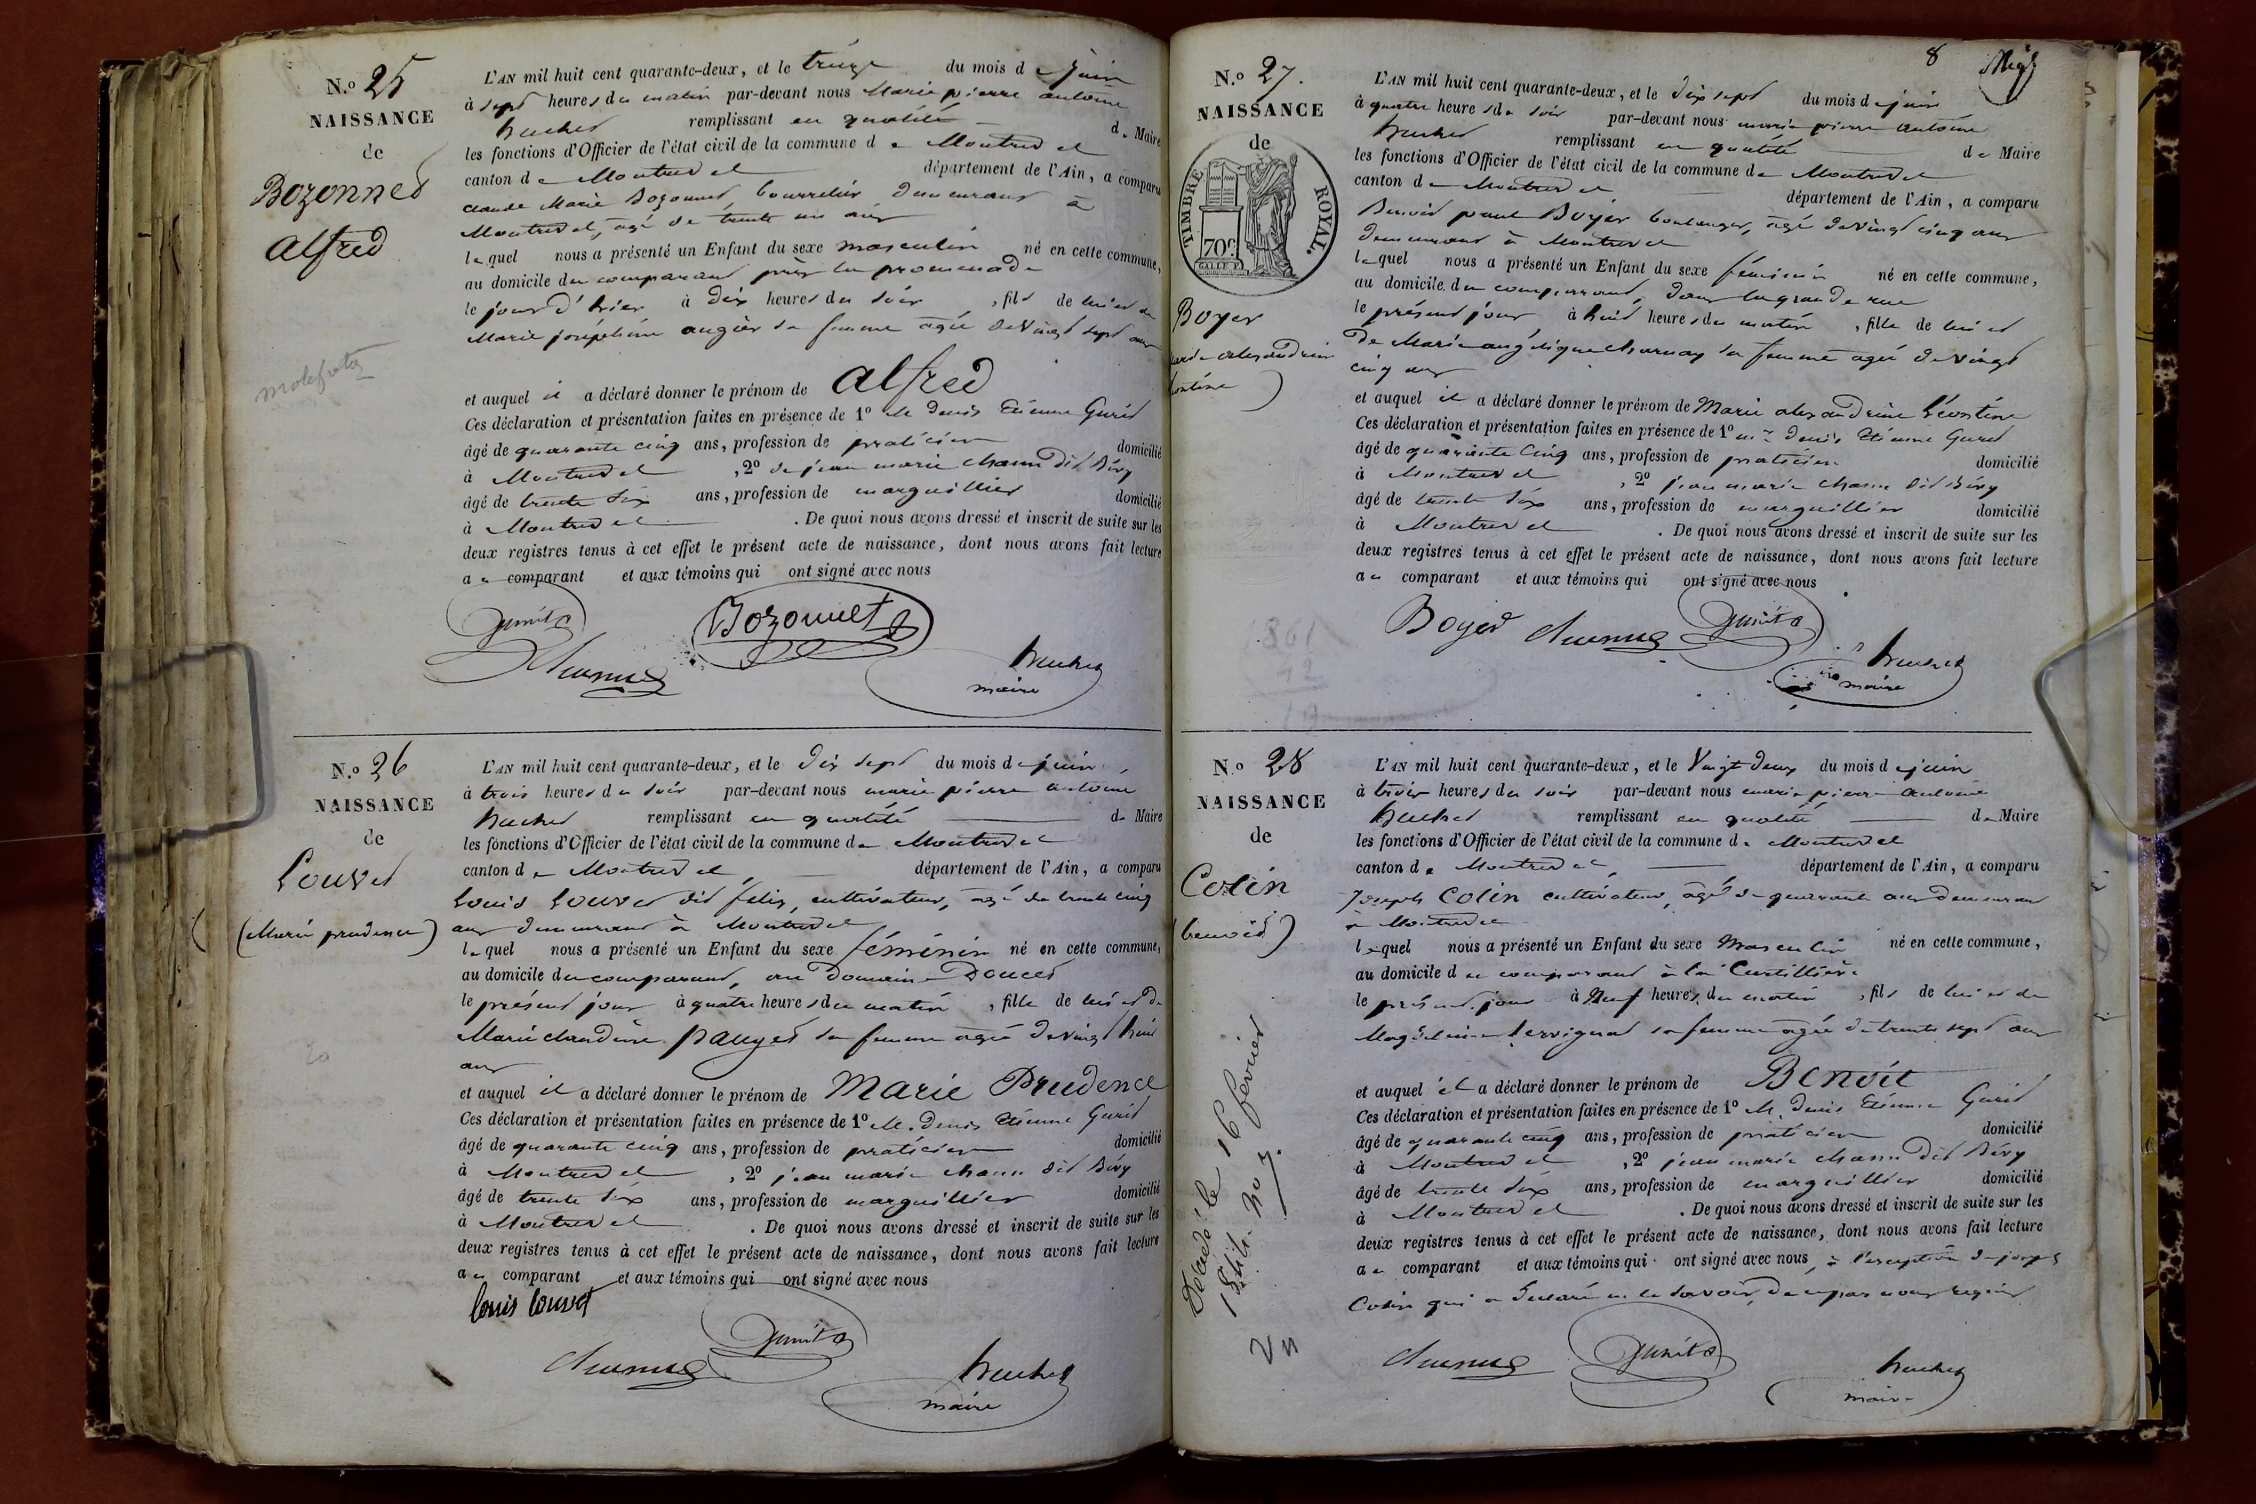 N.º 25
NAISSANCE
de
Bozonnet
Alfred
L'AN mil huit cent quarante-deux, et le treize du mois de juin
à sept heures du matin par-devant nous Marie pierre antoine
huchet remplissant en qualité de Maire
les fonctions d'Officier de l'état civil de la commune de Montrevel
canton de Montrevel département de l'Ain, a comparu
Claude Marie Bozonnet, bourrelier, demeurant à
Montrevel, agé de trente un ans
lequel nous a présenté un Enfant du sexe masculin né en cette commune,
au domicile du comparant près la promenade
le jour d'hier à dix heures du soir, fils de lui et de
Marie joséphine augier sa femme agée de vingt sept ans
et auquel il a déclaré donner le prénom de Alfred
Ces déclaration et présentation faites en présence de 1º M denis Etienne Gurit
âgé de quarante cinq ans, profession de praticien domicilié
à Montrevel, 2º de jean marie chanu dit Béry
âgé de trente six ans, profession de marguillier domicilié
à Montrevel. De quoi nous avons dressé et inscrit de suite sur les
deux registres tenus à cet effet le présent acte de naissance, dont nous avons fait lecture
au comparant et aux témoins qui ont signé avec nous
Bozonnet
huchet
maire
N.º 26
NAISSANCE
de
Louvet
(Marie prudence)
L'AN mil huit cent quarante-deux, et le dix sept du mois de juin
à trois heures du soir par-devant nous marie pierre antoine
huchet remplissant en qualité de Maire
les fonctions d'Officier de l'état civil de la commune de Montrevel
canton de Montrevel, département de l'Ain, a comparu
Louis Louvet dit felix, cultivateur, agé de trente cinq
ans demeurant à Montrevel
lequel nous a présenté un Enfant du sexe féminin né en cette commune,
au domicile du comparant, au Domaine Doucet
le présent jour à quatre heures du matin, fille de lui et de
Marie claudine pauget sa femme agée de vingt huit
ans
et auquel il a déclaré donner le prénom de Marie Prudence
Ces déclaration et présentation faites en présence de 1º M. denis Etienne Gurit
âgé de quarante cinq ans, profession de praticien domicilié
à Montrevel, 2º jean marie chanu dit Béry
âgé de trente six ans, profession de marguillier domicilié
à Montrevel. De quoi nous avons dressé et inscrit de suite sur les
deux registres tenus à cet effet le présent acte de naissance, dont nous avons fait lecture
au comparant et aux témoins qui ont signé avec nous
louis louvet
huchet
maire
8
N.º 27.
NAISSANCE
de
TIMBRE ROYAL.
70c
Boyer
marie alexandrine
léontine
L'AN mil huit cent quarante-deux, et le dix sept du mois de juin
à quatre heures du soir par-devant nous marie pierre antoine
huchet remplissant en qualité de Maire
les fonctions d'Officier de l'état civil de la commune de Montrevel
canton de Montrevel département de l'Ain, a comparu
Benoit paul Boyer boulanger, agé de vingt cinq ans
demeurant à Montrevel
lequel nous a présenté un Enfant du sexe féminin né en cette commune,
au domicile du comparant, dans la grande rue
le présent jour à huit heures du matin, fille de lui et
de Marie angélique charnay sa femme agée de vingt
cinq ans
et auquel il a déclaré donner le prénom de Marie alexandrine Léontine
Ces déclaration et présentation faites en présence de 1º mr denis Etienne Gurit
âgé de quarante Cinq ans, profession de praticien domicilié
à Montrevel, 2º jean marie chanu dit Béry
âgé de trente six ans, profession de marguillier domicilié
à Montrevel. De quoi nous avons dressé et inscrit de suite sur les
deux registres tenus à cet effet le présent acte de naissance, dont nous avons fait lecture
au comparant et aux témoins qui ont signé avec nous
Boyer
huchet
maire
N.º 28
NAISSANCE
de
Colin
(benoit)
Décédé le 16 février
L'AN mil huit cent quarante-deux, et le Vingt deux du mois de juin
à trois heures du soir par-devant nous marie pierre antoine
huchet remplissant en qualité de Maire
les fonctions d'Officier de l'état civil de la commune de Montrevel
canton de Montrevel, département de l'Ain, a comparu
Joseph Colin cultivateur, agé de quarante ans demeurant
à Montrevel
lequel nous a présenté un Enfant du sexe Masculin né en cette commune,
au domicile du comparant à la Curtillière
le présent jour à Neuf heures du matin, fils de lui et de
Magdelaine servignat sa femme agée de trente sept ans
et auquel il a déclaré donner le prénom de Benoit
Ces déclaration et présentation faites en présence de 1º M. denis Etienne Gurit
âgé de quarante cinq ans, profession de praticien domicilié
à Montrevel, 2º jean marie chanu dit Béry
âgé de trente six ans, profession de marguillier domicilié
à Montrevel. De quoi nous avons dressé et inscrit de suite sur les
deux registres tenus à cet effet le présent acte de naissance, dont nous avons fait lecture
au comparant et aux témoins qui ont signé avec nous, à l'exception de joseph
Colin qui a déclaré ne le savoir, de ce par nous requis
huchet
maire